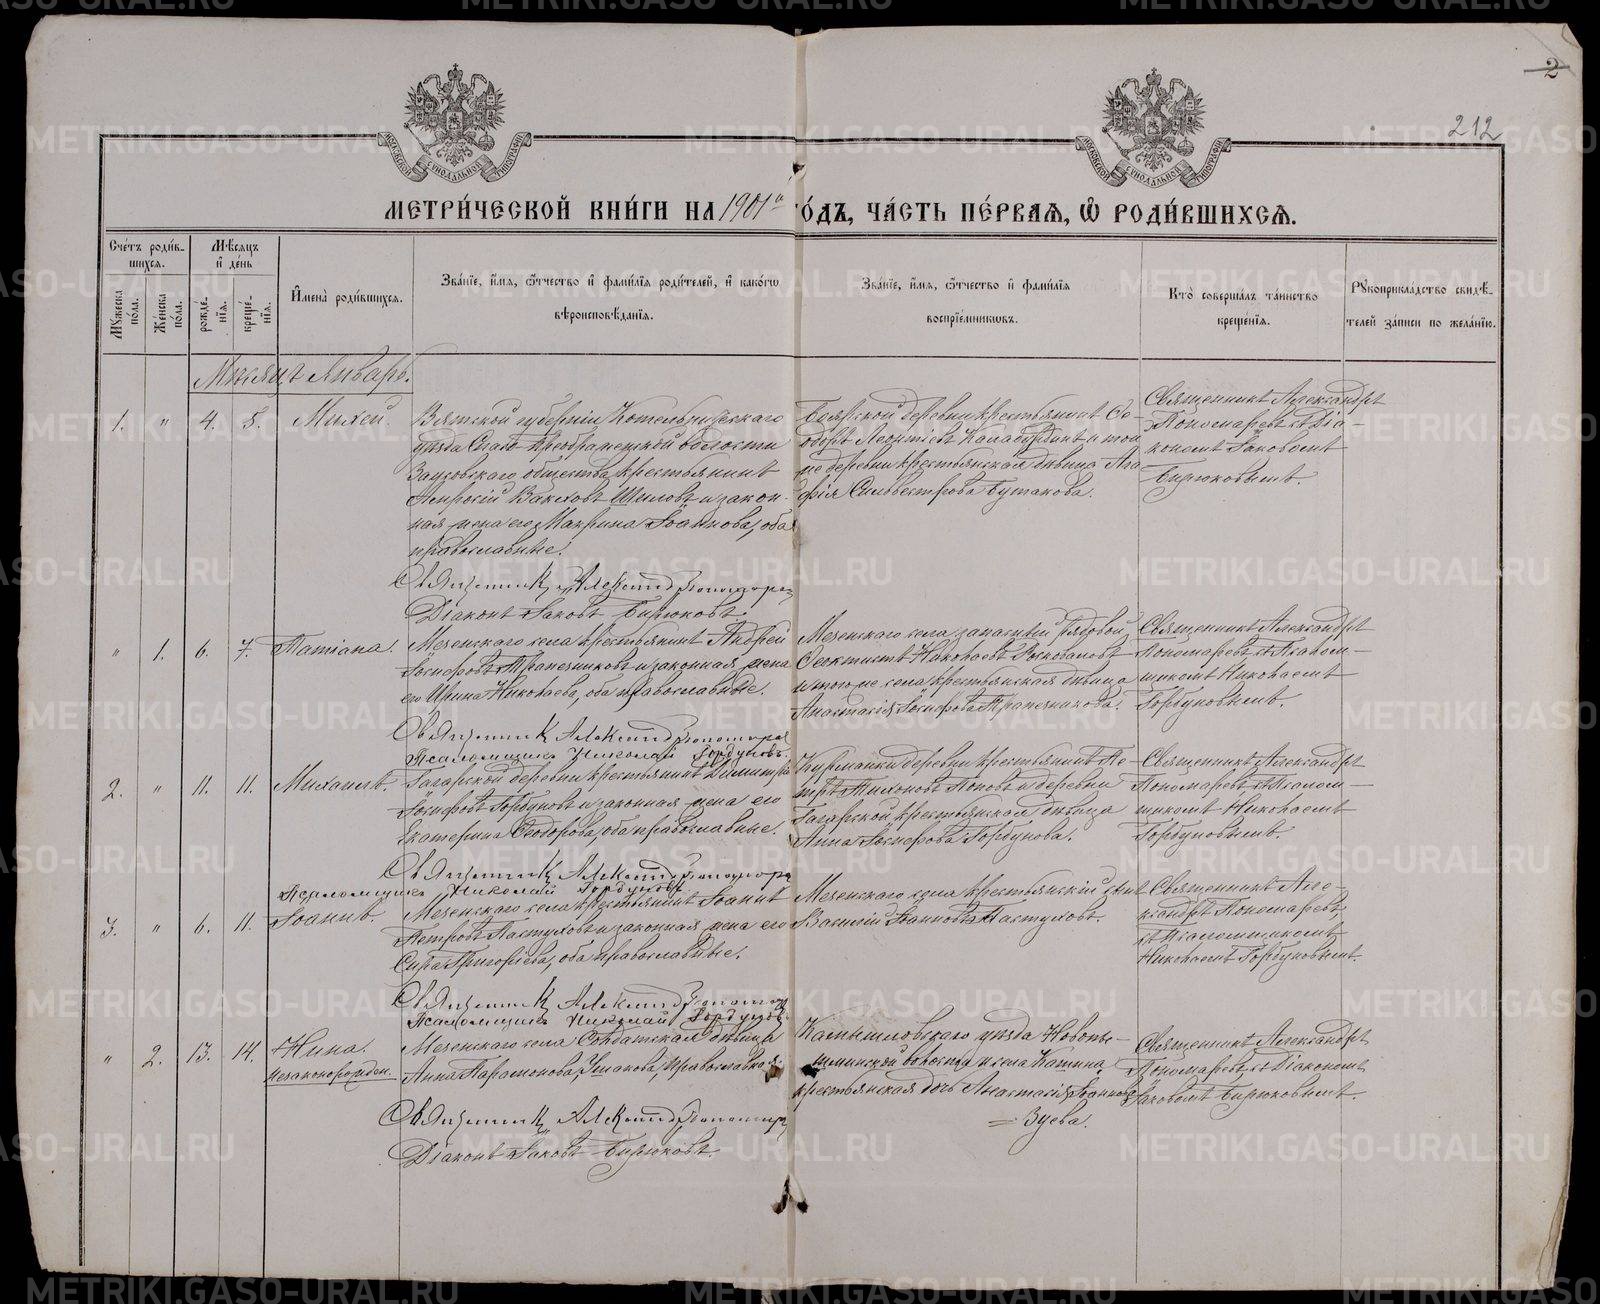 2
212
МОСКОВСКОЙ СѴНОДАЛЬНОЙ ТИПОГРАФІИ
МОСКОВСКОЙ СѴНОДАЛЬНОЙ ТИПОГРАФІИ
МЕТРИ́ЧЕСКОЙ КНИ́ГИ НА 1901й ГО́ДЪ, ЧА́СТЬ ПЕ́РВАѦ, Ѡ҆ РОДИ́ВШИХСѦ.
Сче́тъ роди́в-
шихсѧ.
Мѣ́сѧцъ
и҆ де́нь
Мꙋ́жеска по́ла.
Же́нска по́ла.
рожде́-
нїѧ.
креще́-
нїѧ.
И҆мена̀ роди́вшихсѧ.
Зва́нїе, и҆́мѧ, ѻ҆́тчество и҆ фами́лїѧ роди́телей, и҆ како́гѡ
вѣроисповѣ́данїѧ.
Зва́нїе, и҆́мѧ, ѻ҆́тчество и҆ фами́лїѧ
воспрїе́мникѡвъ.
Кто̀ соверша́лъ та́инство
креще́нїѧ.
Рꙋкоприкла́дство свидѣ́-
телей за́писи по жела́нїю.
Мѣсяцъ Январь.
1. " 4. 5. Михей.
Вятской губерніи Котельническаго
уѣзда Спасо-Преображенской волости
Зауховскаго общества, крестьянинъ
Шиловъ и закон-
ная жена его Макрина Іоаннова, оба
православные.
Священникъ Александръ Пономаревъ
Діаконъ Іаковъ Бирюковъ.
Боярской деревни крестьянинъ Ѳе-
одоръ Леонтіевъ и той
же деревни крестьянская дѣвица Ага-
фія Сильвестрова Бутакова.
Священникъ Александръ
Пономаревъ съ Діа-
кономъ Іаковомъ
Бирюковымъ.
" 1. 6. 7. Татіана.
Мезенскаго села крестьянинъ Андрей
Іосифовъ Трапезниковъ и законная жена
его Ирина Николаева, оба православные.
Священникъ Александръ Пономаревъ
Псаломщикъ Николай Горбуновъ.
Мезенскаго села запасный рядовой
Ѳеоктистъ Николаевъ
и того же села крестьянская дѣвица
Анастасія Іосифова Трапезникова.
Священникъ Александръ
Пономаревъ съ Псалом-
щикомъ Николаемъ
Горбуновымъ.
2. " 11. 11. Михаилъ.
Гагарской деревни крестьянинъ Димитрій
Іосифовъ Горбуновъ и законная жена его
Екатерина Ѳеодорова, оба православные.
Священникъ Александръ Пономаревъ
Псаломщикъ Николай Горбуновъ
Курманки деревни крестьянинъ Пе-
тръ Тихоновъ Поповъ и деревни
Гагарской крестьянская дѣвица
Анна Іосифова Горбунова.
Священникъ Александръ
Пономаревъ съ Псалом-
щикомъ Николаемъ
Горбуновымъ.
3. " 6. 11. Іоаннъ.
Мезенскаго села крестьянинъ Іоаннъ
Петровъ Пастуховъ и законная жена его
Григорьева, оба православные.
Священникъ Александръ Пономаревъ
Псаломщикъ Николай Горбуновъ
Мезенскаго села крестьянскій сынъ
Василій Іоанновъ Пастуховъ.
Священникъ Алек-
сандръ Пономаревъ,
съ Псаломщикомъ
Николаемъ Горбуновымъ.
" 2. 13. 14. Нина.
Незаконорожден.
Мезенскаго села Солдатская дѣвица
Анна Парамонова, Ушакова, православная.
Священникъ Александръ Пономаревъ
Діаконъ Іаковъ Бирюковъ.
Камышловскаго уѣзда Новопы-
шминской волости и села
крестьянская дочь Анастасія Іоаннова
Зуева.
Священникъ Александръ
Пономаревъ, съ Діакономъ
Іаковомъ Бирюковымъ.
METRIKI.GASO-URAL.RU